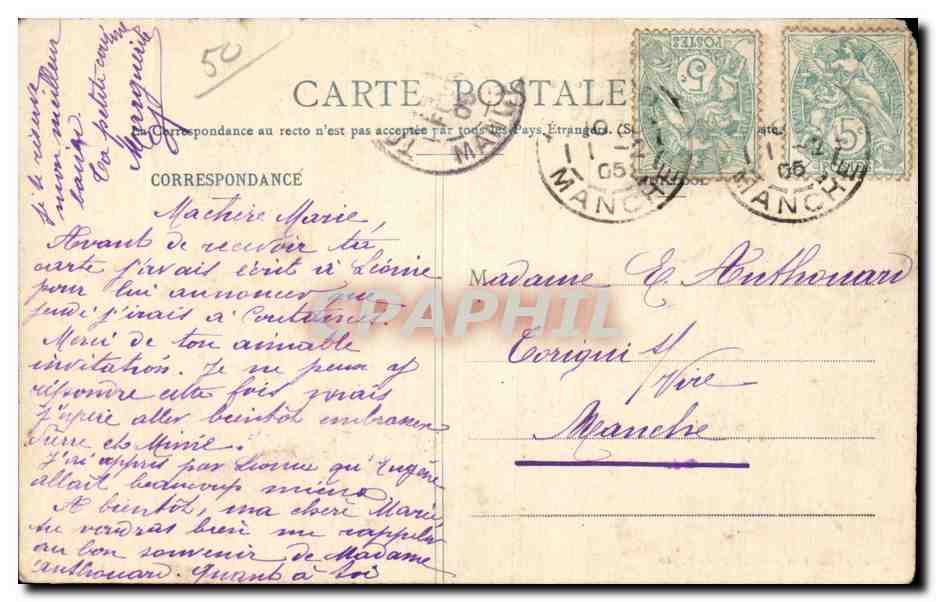 50
CARTE POSTALE
La Correspondance au recto n'est pas acceptée par tous les Pays Étrangers. (S
POSTES
5c
5c
MANCHE
11 -2
05
MANCHE
11 -2
05
MANCHE
CORRESPONDANCE
Ma chère Marie,
Avant de recevoir ta
carte j'avais écrit à Léonie
pour lui annoncer que
jeudi j'irais à Coutances.
Merci de ton aimable
invitation. Je ne peux y
répondre cette fois mais
j'espère aller bientôt embrasser
Pierre et Mimie.
J'ai appris par Léonie qu'Eugène
allait beaucoup mieux
A bientôt, ma chère Marie
tu voudras bien me rappeler
au bon souvenir de Madame
Anthouard. Quant à toi
je te réserve
mon meilleur
baiser
Ta petite
Marguerite
Madame E. Anthouard
Torigni s/
Vire
Manche
CPAPHIL